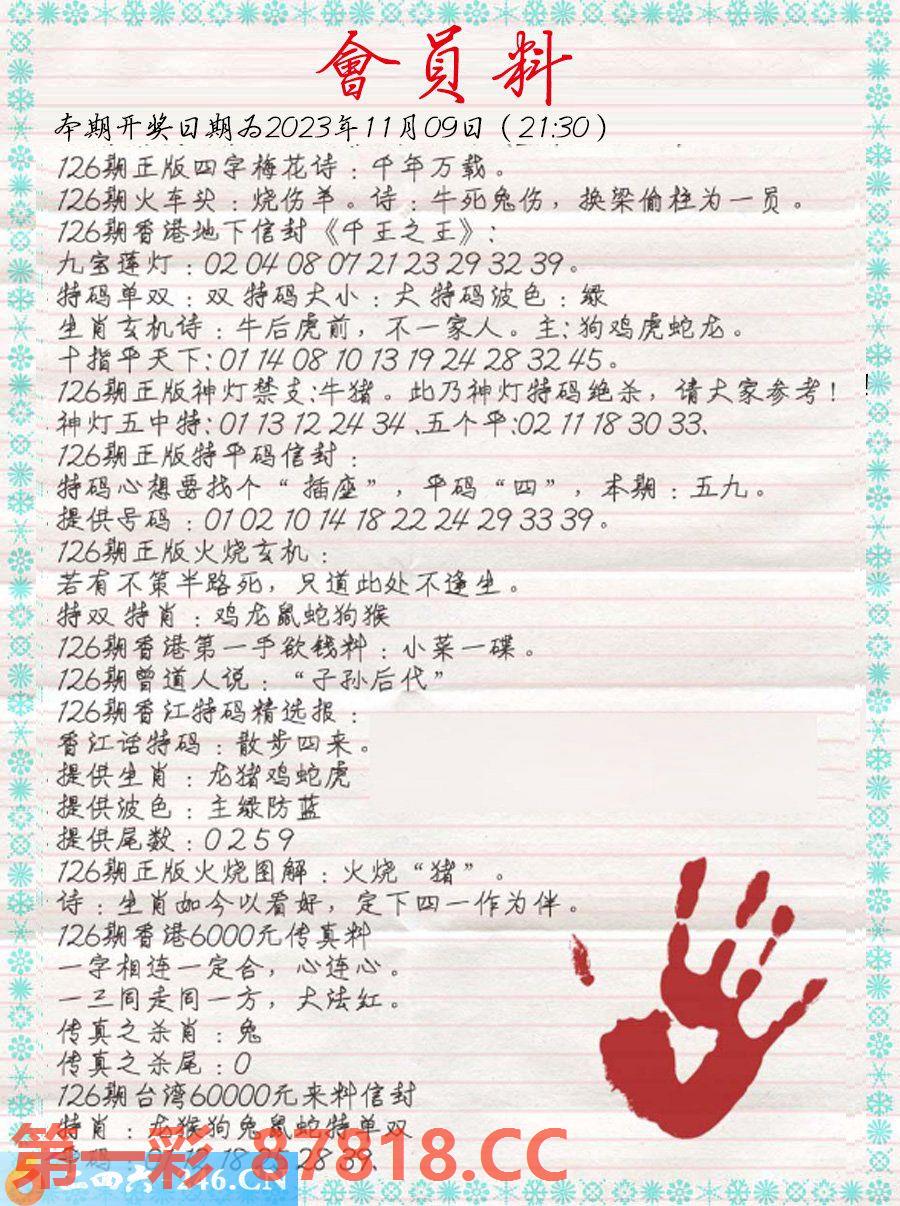 會員料
本期开奖日期为2023年11月09日（21:30）
126期正版四字梅花诗：千年万载。
126期火车头：烧伤羊。诗：牛死兔伤，换梁偷柱为一员。
126期香港地下信封《千王之王》：
九宝莲灯：02 04 08 07 21 23 29 32 39。
特码单双：双 特码大小：大 特码波色：绿
生肖玄机诗：牛后虎前，不一家人。主：狗鸡虎蛇龙。
十指平天下：01 14 08 10 13 19 24 28 32 45。
126期正版神灯禁支：牛猪。此乃神灯特码绝杀，请大家参考！
神灯五中特：01 13 12 24 34、五个平：02 11 18 30 33、
126期正版特平码信封：
特码心想要找个“插座”，平码“四”，本期：五九。
提供号码：01 02 10 14 18 22 24 29 33 39。
126期正版火烧玄机：
若有不策半路死，只道此处不逢生。
特双 特肖：鸡龙鼠蛇狗猴
126期香港第一手欲钱料：小菜一碟。
126期曾道人说：“子孙后代”
126期香江特码精选报：
香江话特码：散步四来。
提供生肖：龙猪鸡蛇虎
提供波色：主绿防蓝
提供尾数：0 2 5 9
126期正版火烧图解：火烧“猪”。
诗：生肖如今以看好，定下四一作为伴。
126期香港6000元传真料
一字相连一定合，心连心。
一三同走同一方，大法红。
传真之杀肖：兔
传真之杀尾：0
126期台湾60000元来料信封
特肖：龙猴狗兔鼠蛇特单双
第一彩 87818.CC
246.CN